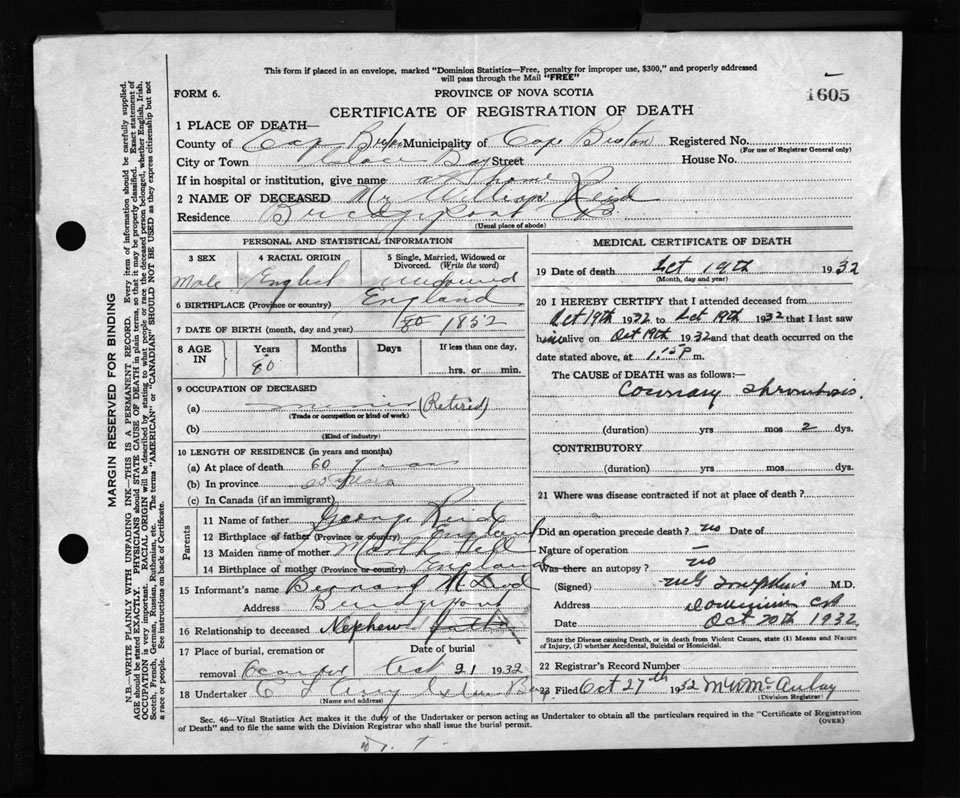 This form if placed in an envelope, marked "Dominion Statistics—Free, penalty for improper use, $300," and properly addressed
will pass through the Mail "FREE"
FORM 6.
PROVINCE OF NOVA SCOTIA
1605
CERTIFICATE OF REGISTRATION OF DEATH
1 PLACE OF DEATH—
County of Cape Breton Municipality of Cape Breton Registered No.
(For use of Registrar General only)
City or Town Glace Bay Street House No.
If in hospital or institution, give name at home
2 NAME OF DECEASED Mr William Reid
Residence Bridgeport CB.
(Usual place of abode)
PERSONAL AND STATISTICAL INFORMATION
3 SEX 4 RACIAL ORIGIN 5 Single, Married, Widowed or
Divorced. (Write the word)
Male English Widowed
6 BIRTHPLACE (Province or country) England
7 DATE OF BIRTH (month, day and year) 80 1852
8 AGE IN Years Months Days If less than one day,
80 hrs. or min.
9 OCCUPATION OF DECEASED
(a) miner (Retired)
(Trade or occupation or kind of work)
(b)
(Kind of industry)
10 LENGTH OF RESIDENCE (in years and months)
(a) At place of death 60 years
(b) In province years
(c) In Canada (if an immigrant)
Parents
11 Name of father George Reid
12 Birthplace of father (Province or country) England
13 Maiden name of mother Hell
14 Birthplace of mother (Province or country) England
15 Informant's name Bernard
Address Bridgeport
16 Relationship to deceased Nephew
17 Place of burial, cremation or Date of burial
removal Oct 21 1932
18 Undertaker
(Name and address)
MEDICAL CERTIFICATE OF DEATH
19 Date of death Oct 19th 1932
(Month, day and year)
20 I HEREBY CERTIFY that I attended deceased from
Oct 19th 1932 to Oct 19th 1932 that I last saw
him alive on Oct 19th 1932 and that death occurred on the
date stated above, at 1.15 P m.
The CAUSE of DEATH was as follows:—
Coronary Thrombosis.
(duration) yrs mos 2 dys.
CONTRIBUTORY
(duration) yrs mos dys.
21 Where was disease contracted if not at place of death?
Did an operation precede death? no Date of
Nature of operation —
Was there an autopsy? no
(Signed) M G Tompkins M.D.
Address Dominion CB
Date Oct 20th 1932.
State the Disease causing Death, or in death from Violent Causes, state (1) Means and Nature
of Injury, (2) whether Accidental, Suicidal or Homicidal.
22 Registrar's Record Number
23 Filed Oct 27th 1932 McAulay
(Division Registrar)
Sec. 46—Vital Statistics Act makes it the duty of the Undertaker or person acting as Undertaker to obtain all the particulars required in the "Certificate of Registration
of Death" and to file the same with the Division Registrar who shall issue the burial permit.
(OVER)
MARGIN RESERVED FOR BINDING
N.B.—WRITE PLAINLY WITH UNFADING INK—THIS IS A PERMANENT RECORD. Every item of information should be carefully supplied.
AGE should be stated EXACTLY. PHYSICIANS should STATE CAUSE OF DEATH in plain terms, so that it may be properly classified. Exact statement of
OCCUPATION is very important. RACIAL ORIGIN will be described by stating to what people or race the deceased person belonged, whether English, Irish,
Scotch, French, German, Russian, Ruthenian, etc. The terms "AMERICAN" or "CANADIAN" SHOULD NOT BE USED as they express citizenship but not
a race or people. See instructions on back of Certificate.